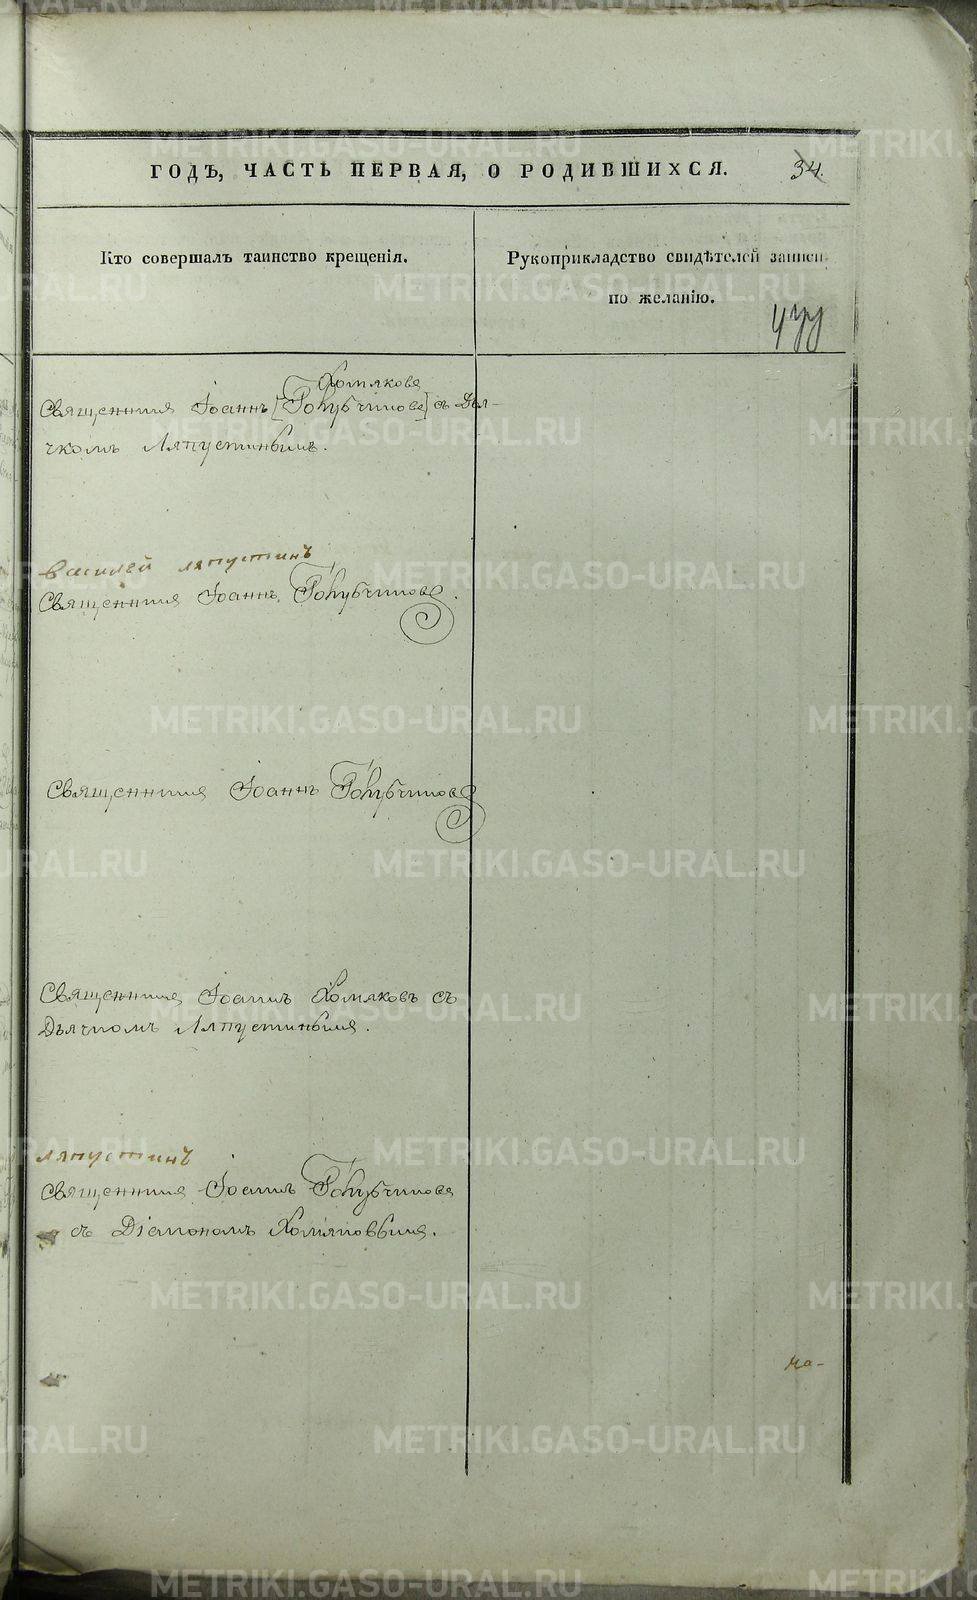 ГОДЪ, ЧАСТЬ ПЕРВАЯ, О РОДИВШИХСЯ. 34.
Кто совершалъ таинство крещенія.
Рукоприкладство свидѣтелей записи
по желанію.
Хомяковъ
Священникъ Іоаннъ [Голубчиковъ] съ Дья-
чкомъ Ляпустинымъ.
Василей ляпустинъ
Священникъ Іоаннъ Голубчиковъ.
Священникъ Іоаннъ Голубчиковъ
Священникъ Іоаннъ Хомяковъ съ
Дьячкомъ Ляпустинымъ.
ляпустинъ
Священникъ Іоаннъ Голубчиковъ
съ Діакономъ Хомяковымъ.
на-
METRIKI.GASO-URAL.RU